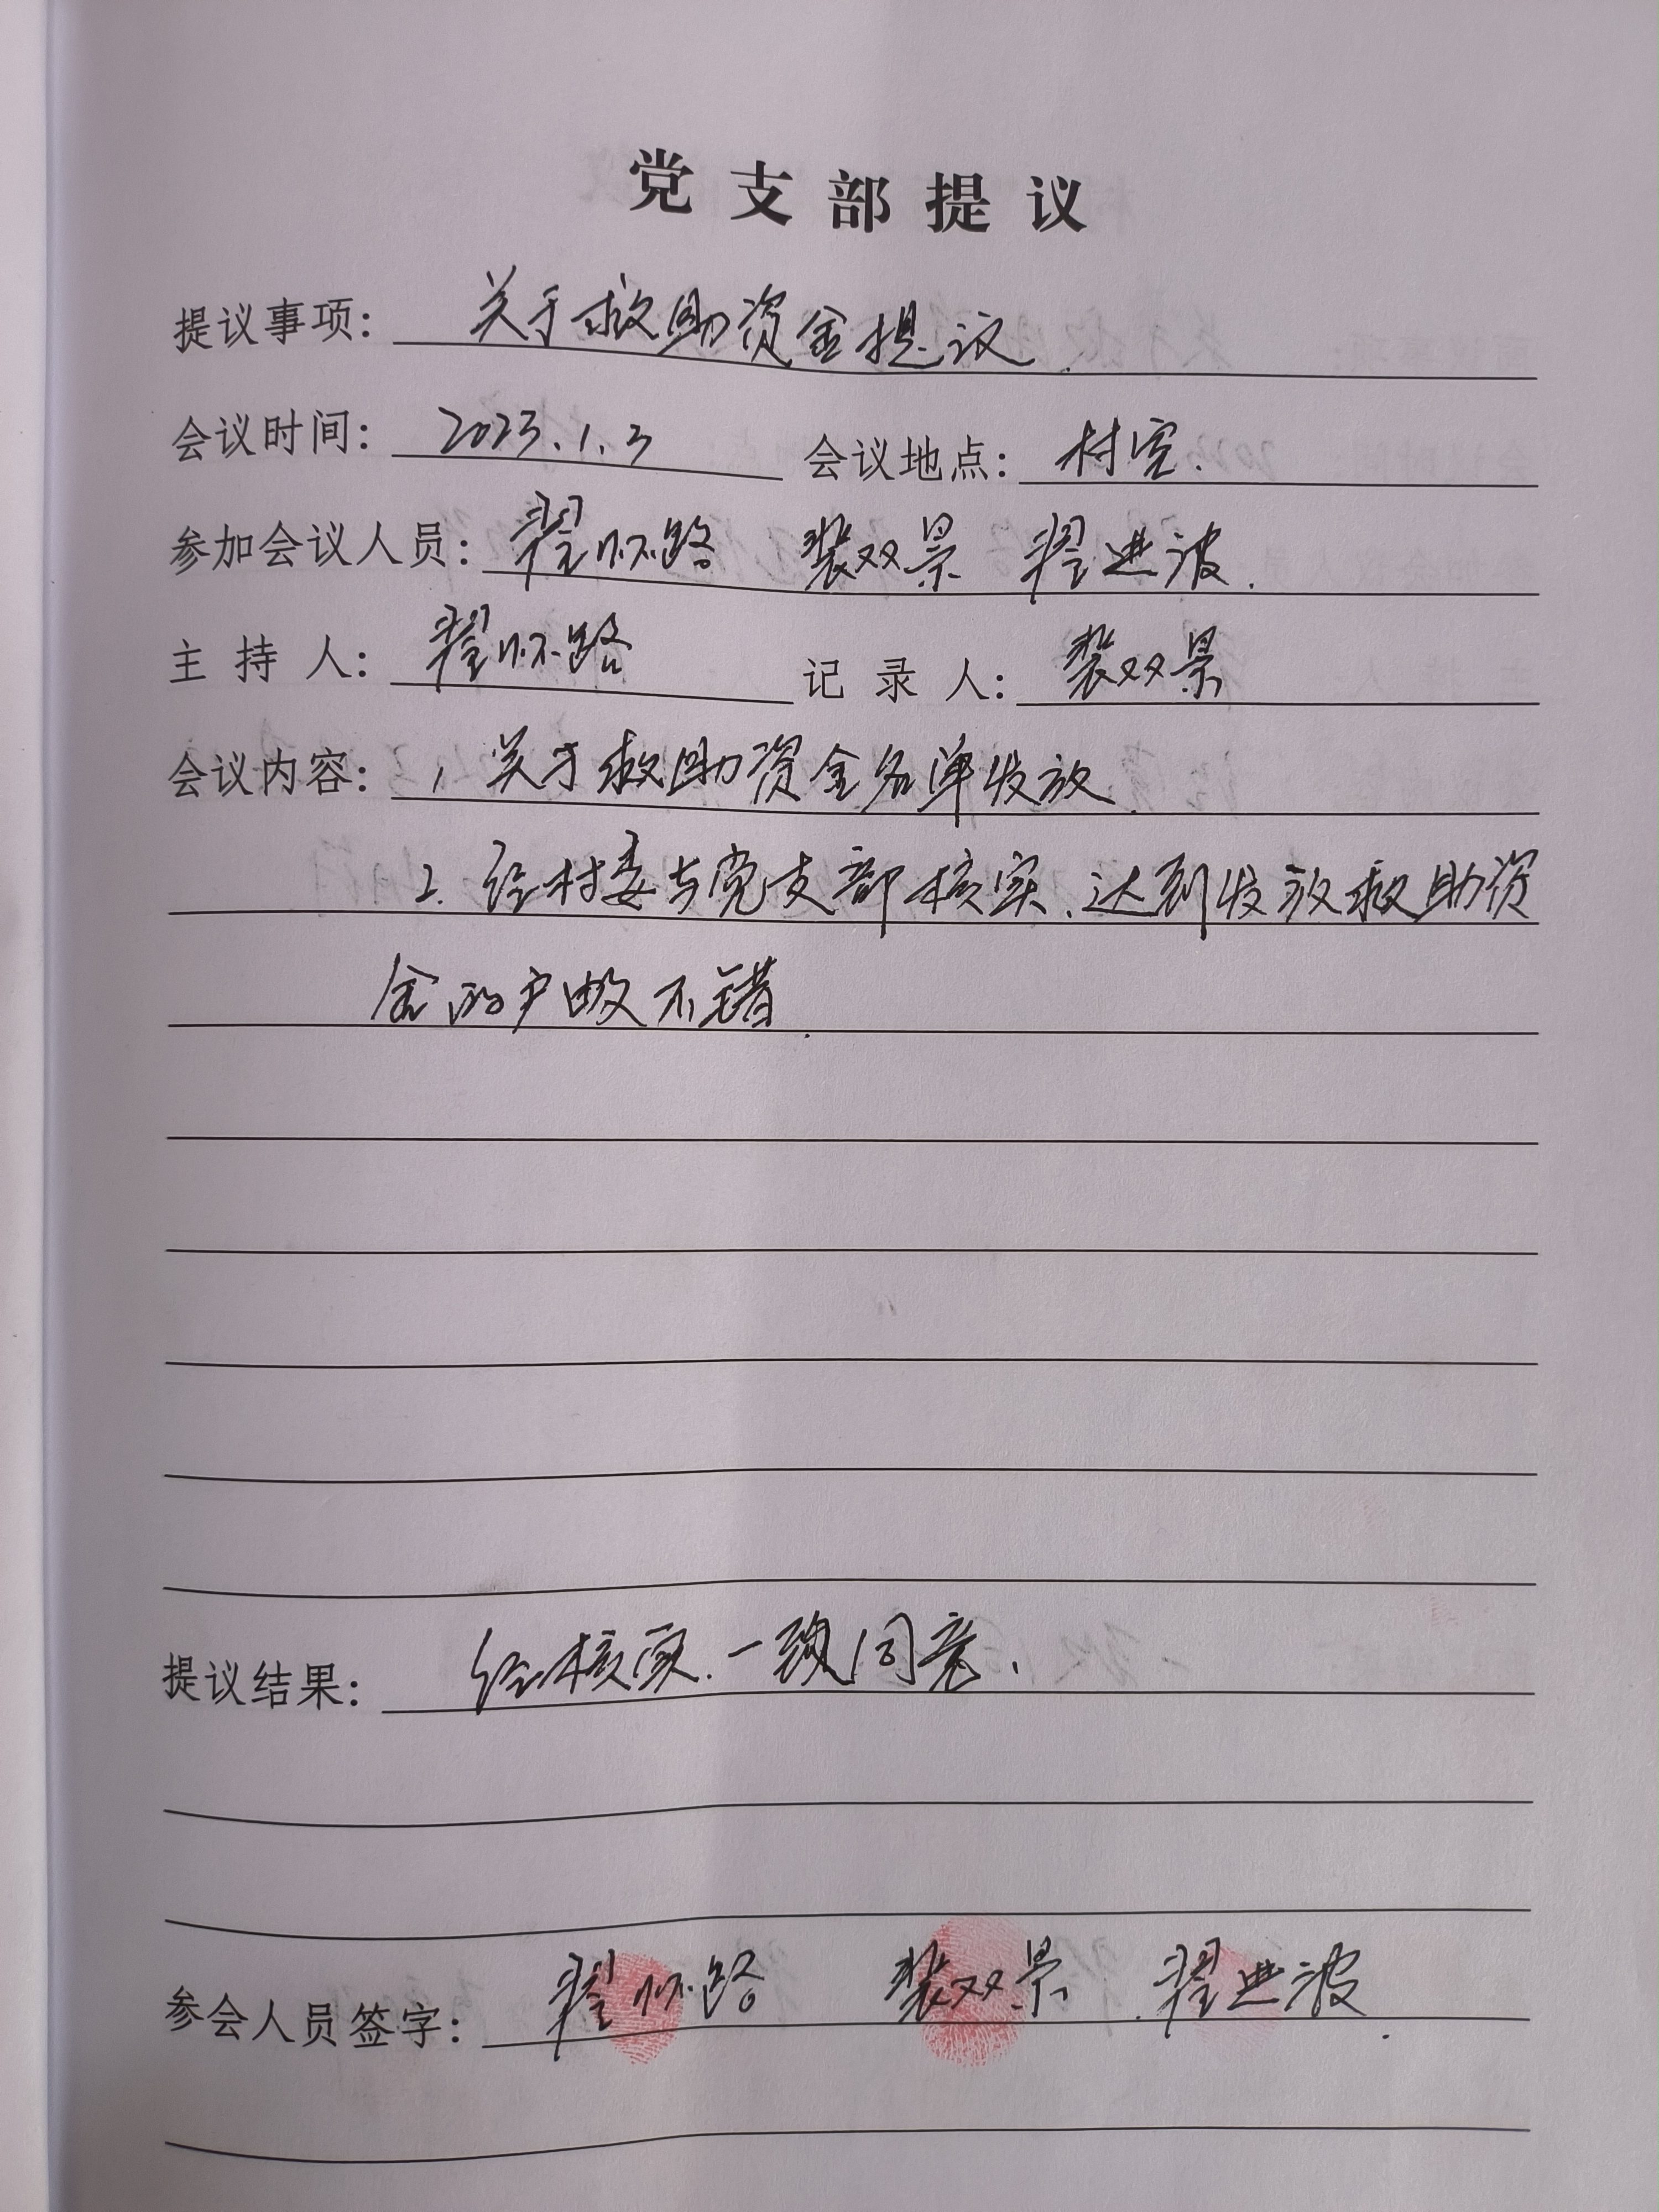 党支部提议
提议事项： 关于救助资金提议.
会议时间： 2023.1.3 会议地点： 村室.
参加会议人员： 翟怀路 裴双景 翟进波.
主持人： 翟怀路 记录人： 裴双景
会议内容： 1, 关于救助资金名单发放.
2. 经村委与党支部核实、达到发放救助资
金的户 不错.
提议结果： 经核实.一致同意.
参会人员签字： 翟怀路 裴双景. 翟进波.